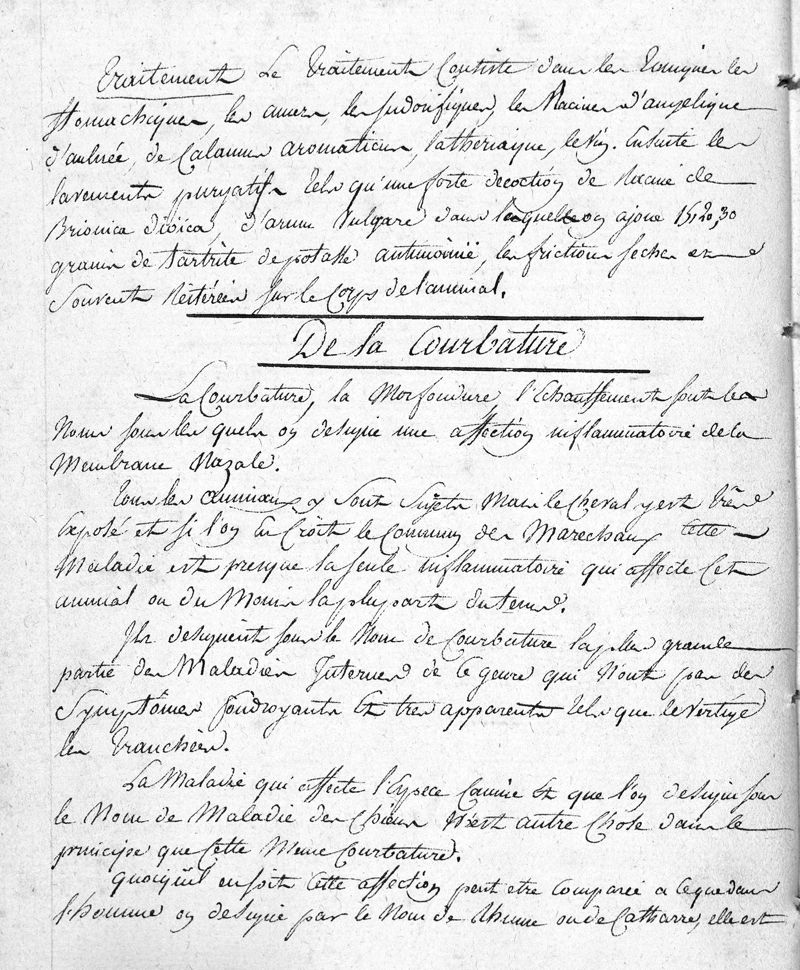 Traitement Le Traitement Consiste dans les Toniques les
stomachiques, les amers, les sudorifiques, les Racines d'angelique
d'aulnée, de Calamus aromaticus, la thériaque, le vin. Ensuite les
lavements purgatifs tels qu'une forte decoction de Racine de
Brionica dioïca, d'arum vulgare dans lesquelles on ajoue 15, 20, 30
grains de tartrite de potasse antimoinié, les frictions seches et
souvent Réiterées sur le Corps de l'animal.
De la Courbature
La Courbature, la Morfondure l'Echauffement sont les
Noms sous les quels on designe une affection inflammatoire de la
Membrane Nazale.
Tous les animaux y sont sujets Mais le Cheval y est très
Exposé et si l'on En Croit le Commun des Marechaux Cette
Maladie est presque la seule inflammatoire qui affecte Cet
animal ou du Moins la plupart du tems.
Ils designent sous le Nom de Courbature la plus grande
partie des Maladies Internes de Ce genre qui N'ont pas des
Symptômes foudroyants Et tres apparents tels que le vertige
les Tranchées.
La Maladie qui affecte l'Espece Canine Et que l'on designe sous
le Nom de Maladie des Chiens N'est autre Chose dans le
principe que Cette Meme Courbature.
quoiqu'il en soit Cette affection peut etre Comparée a Ce que dans
l'homme on designe par le Nom de Rhume ou de Catharre, elle est